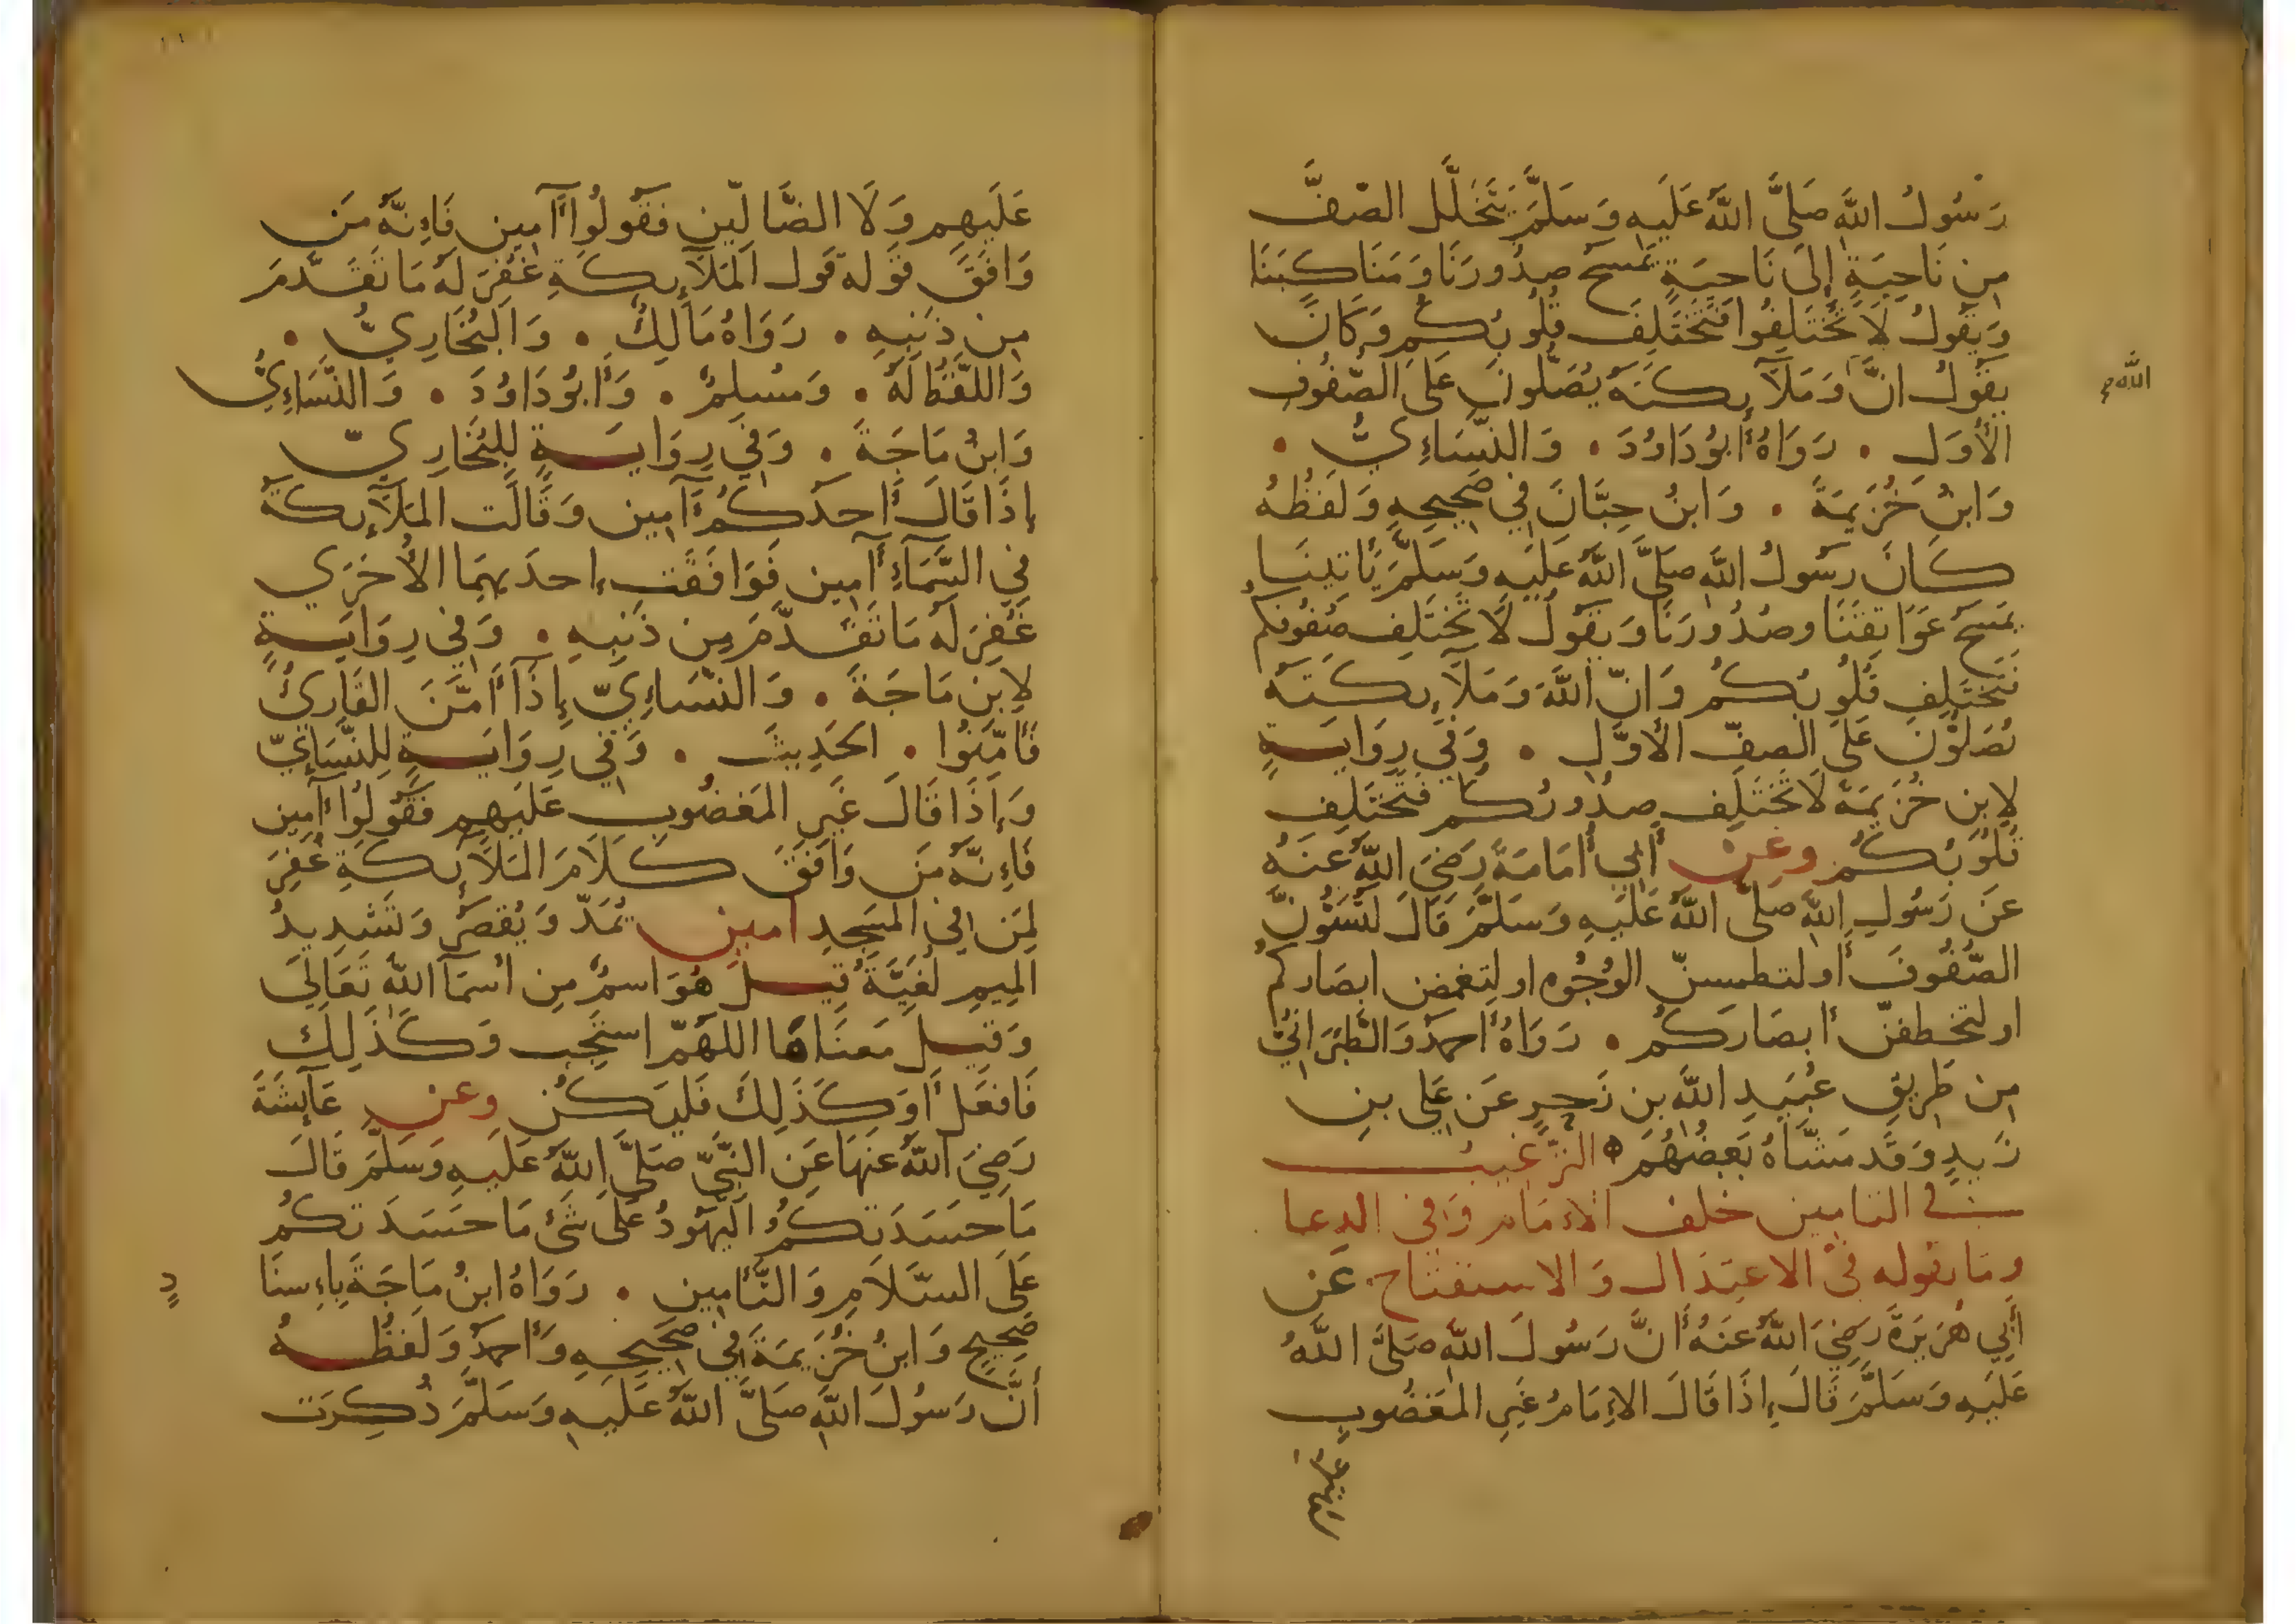 رَسُولُ اللَّهِ صَلَّى اللَّهُ عَلَيهِ وَسَلَّمَ يَتَخَلَّلُ الصَّفَّ
مِن نَاحِيَةٍ إِلَى نَاحِيَةٍ يَمْسَحُ صُدُورَنَا وَمَنَاكِبَنَا
وَيَقُولُ لَا تَختَلِفُوا فَتَختَلِفَ قُلُوبُكُم وَكَانَ
يَقُولُ انَّ وَمَلَآئِكَتَهُ يُصَلُّونَ عَلَى الصُّفُوفِ
اللَّه صح
الأُوَلِ • رَوَاهُ أَبُو دَاوُدَ • وَالنَّسَاءِيُّ •
وَابنُ خُزَيمَةَ • وَابنُ حِبَّانَ فِي صَحِيحِهِ وَلَفظُهُ
كَانَ رَسُولُ اللَّهِ صَلَّى اللَّهُ عَلَيهِ وَسَلَّمَ يَأتِينَا
يَمسَحُ عَوَاتِقَنَا وصُدُورَنَا وَيَقُولُ لَا تَختَلِف صُفُوفُكُم
فَتَختَلِفَ قُلُوبُكُم وَانَّ اللَّهَ وَمَلَآئِكَتَهُ
يُصَلُّونَ عَلَى الصفِّ الأوَّلِ • وَفِي رِوَايَةٍ
لِابنِ خُزَيمَةَ لَا تَختَلِف صُدُورُكُم فَتَختَلِفَ
قُلُوبُكُم وعن أَبِي أُمَامَةَ رَضِيَ اللَّهُ عَنهُ
عَن رَسُولِ اللَّهِ صَلَّى اللَّهُ عَلَيهِ وَسَلَّمَ قَالَ لَتُسَوُّنَّ
الصُّفُوفَ أَو لتطمسنّ الوُجُوه او لتغمض ابصَاركُم
او لتخطفنّ أبصَارَكُم • رَوَاهُ أَحمَدُ وَالطَّبَرَانِيُّ
مِن طَرِيقِ عُبَيدِ اللَّهِ بن زَحرٍ عَن عَلِي بنِ
زَيدٍ وَقَد مَشَّاهُ بَعضُهُم الترغيب
في التامين خلف الامَام وَفي الدعا
ومَا يقوله في الاعتِدَال وَالاستفتاح عَن
أَبِي هُرَيرَةَ رَضِيَ اللَّهُ عَنهُ أَنَّ رَسُولَ اللَّهِ صَلَّى اللَّهُ
عَلَيهِ وَسَلَّمَ قَالَ إِذَا قَالَ الإِمَامُ غَيرِ المَغضُوبِ
عليهم
عَلَيهِم وَلَا الضَّالِّين فَقُولُوا آمِين فَإِنَّهُ مَن
وَافَقَ قَولُهُ قَولَ المَلَآئِكَةِ غُفِرَ لَهُ مَا تَقَدَّمَ
مِن ذَنبِهِ • رَوَاهُ مَالِكٌ • وَالبُخَارِيُّ •
وَاللَّفظُ لَهُ • وَمُسلِمٌ • وَأَبُو دَاوُدَ • وَالنَّسَاءِيُّ
وَابنُ مَاجَةَ • وَفِي رِوَايَةٍ لِلبُخَارِيِّ
إِذَا قَالَ أَحَدُكُم آمِين وَقَالَت المَلَآئِكَةُ
فِي السَّمَآءِ آمِين فَوَافَقَت إحدَيهُمَا الأُخرَي
غُفِرَ لَهُ مَا تَقَدَّمَ مِن ذَنبِهِ • وَفِي رِوَايَةٍ
لِابنِ مَاجَةَ • وَالنَّسَاءِيِّ إِذَا أَمَّنَ القَارِئُ
فَأَمِّنُوا • الحَدِيثَ • وَفِي رِوَايَةٍ لِلنَّسَاءِيِّ
وَإِذَا قَالَ غَيرِ المَغضُوبِ عَلَيهِم فَقُولُوا آمِين
فَإِنَّهُ مَن وَافَقَ كَلَامَ المَلَآئِكَةِ غُفِرَ
لِمَن فِي المَسجِدِ امين يُمَدّ وَيُقصَر وَتَشدِيدُ
المِيمِ لُغَيَّةٌ قِيلَ هُوَ اسمٌ مِن اسمَآ اللَّهِ تَعَالَى
وَقِيلَ مَعنَاهَا اللهُمّ استَجِب وَكَذَلِكَ
فَافعَل أَو كَذَلِكَ فَليَكُن وعن عَآئِشَةَ
رَضِيَ اللَّهُ عَنهَا عَنِ النَّبِيِّ صَلَّى اللَّهُ عَلَيهِ وَسَلَّمَ قَالَ
مَا حَسَدَتكُمُ اليَهُودُ عَلَى شَئ مَا حَسَدَتكُم
عَلَى السَّلَامِ وَالتَّأمِين • رَوَاهُ ابنُ مَاجَةَ بِإِسنَا
دٍ
صَحِيحٍ وَابنُ خُزَيمَةَ فِي صَحِيحِهِ وَأَحمَدُ وَلَفظُهُ
أَنَّ رَسُولَ اللَّهِ صَلَّى اللَّهُ عَلَيهِ وَسَلَّمَ ذُكِرَت